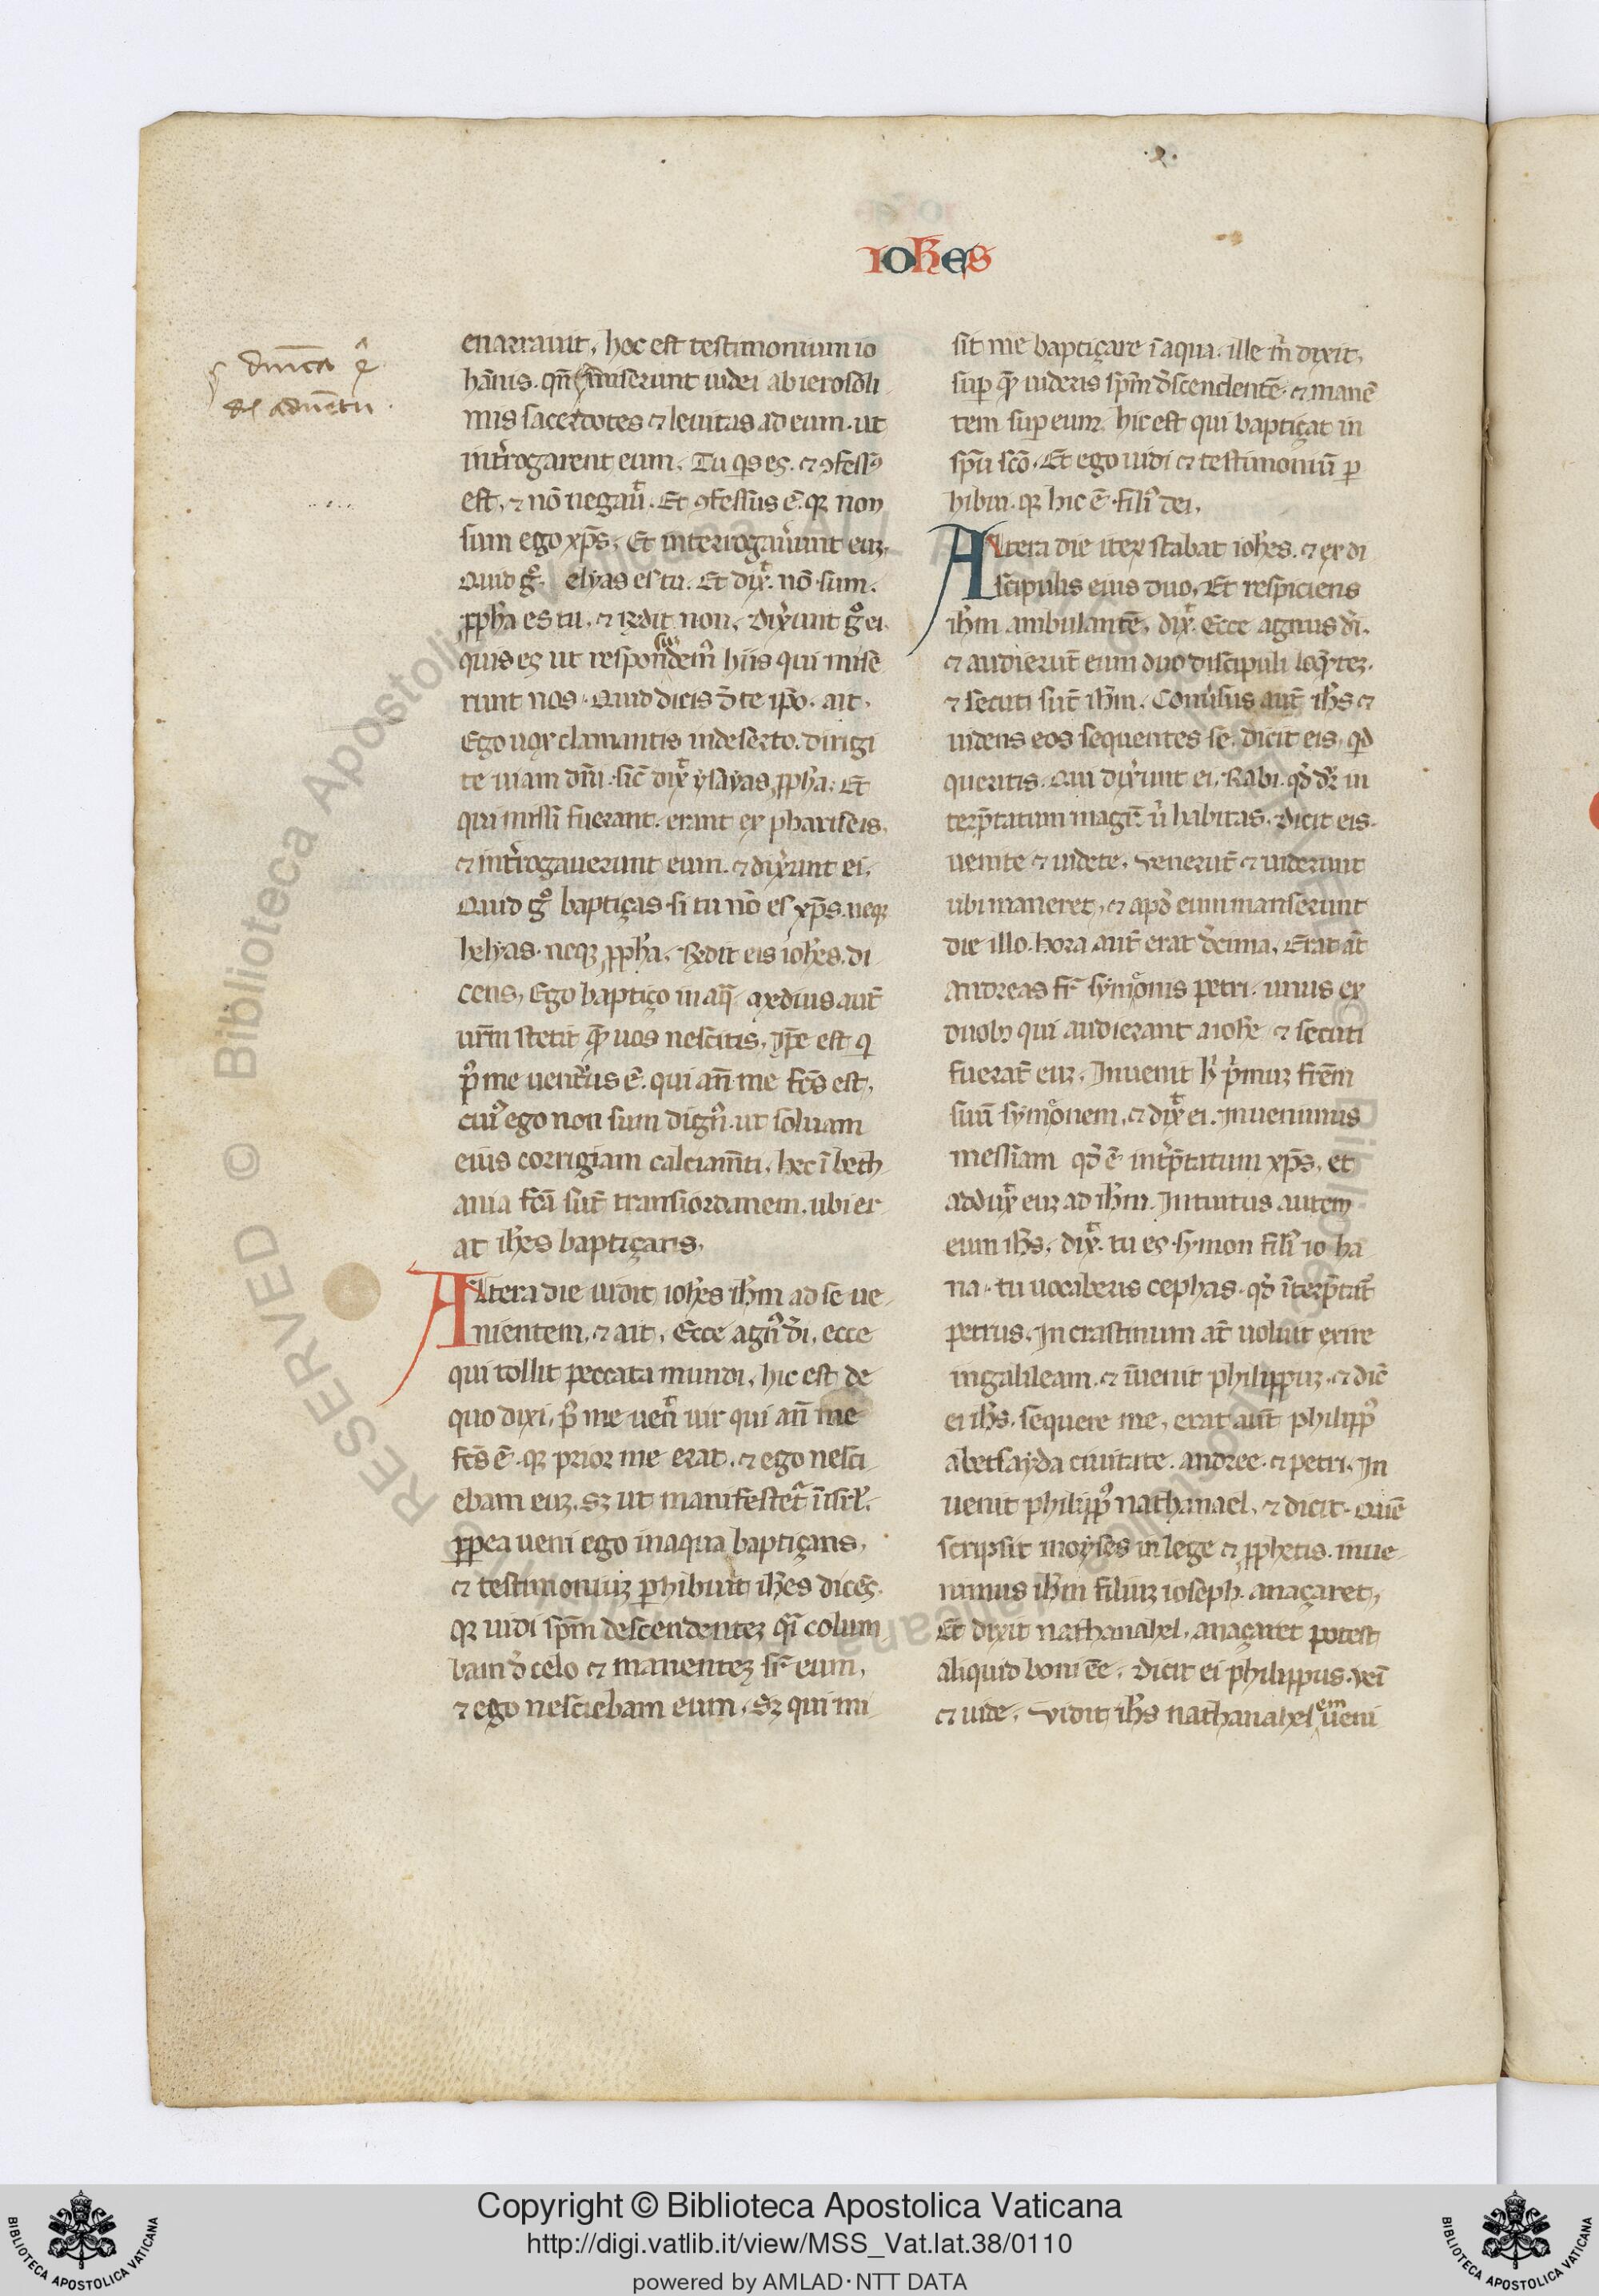 ioħes
dnīca ͥ ꝗ
de aduētu
enarrauit, hoc est testimonium io
hānis. qn̄ miserunt iudei ab ierosoli
mis sacerdotes ⁊ leuitas ad eum. ut
int̾rogarent eum. Tu qͥs es. ⁊ ꝯfessꝰ
est, ⁊ nō negauͭ. Et ꝯfessus ē. qꝛ non
sum ego xp̄s. Et interrogau̾unt euꝫ.
Quid gͦ. elyas es tu. Et dixͭ. nō sum.
ꝓpha es tu, ⁊ r̄ndit non. Dix̾unt gͦ ei.
quis es ut responsū dem̾ hiis qui mise
runt nos. Quid dicis đ te ip̄o. ait.
Ego uox clamantis in deserto. dirigi
te uiam dn̄i. sic̄ dixͭ ysayas ꝓpha. Et
qui missi fuerant. erant ex phariseis,
⁊ int̾rogauerunt eum. ⁊ dix̾unt ei.
Quid gͦ baptiças. si tu nō es xp̄s. neqꝫ
helyas. neqꝫ ꝓpha. R̄ndit eis ioħes. di
cens, Ego baptiço in aqͣ. medius aut̄
ur̄m stetit quē uos nescitis, Ip̄e est qͥ
pͦ me uent̾us ē. qui an̄ me fc̄s est,
cuiꝰ ego non sum dignꝰ. ut soluam
eius corrigiam calciam̄ti, hec ī beth
ania fc̄a sūt trans iordanem. ubi er
at ioħes baptiçans.
Altera die uidit ioħes iħm ad se ue
nientem. ⁊ ait. Ecce agnꝰ di, ecce
qui tollit peccata mundi, hic est de
quo dixi, pͦ me uenͭ uir qui an̄ me
fc̄s ē. qꝛ prior me erat. ⁊ ego nesci
ebam euꝫ. sꝫ ut manifestet̾ ī isrl̄.
ꝓpea ueni ego in aqua baptiçans,
⁊ testimoniuꝫ ꝑhibuit ioħes dicēs.
qꝛ uidi sp̄m descendenteꝫ qͣi colum
bam đ celo ⁊ manenteꝫ sr̄ eum,
⁊ ego nesciebam eum. sꝫ qui mi
sit me baptiçare ī aqua. ille m̄ dixit.
suꝑ quē uideris sp̄m đscendentē. ⁊ manē
tem suꝑ eum. hic est qui baptiçat in
sp̄u scō. Et ego uidi ⁊ testimoniū ꝑ
hibui. qꝛ hic ē filiꝰ dei.
Altera die iteꝝ stabat ioħes. ⁊ ex di
scipulis eius duo. Et respiciens
iħm ambulantē, dixͭ. Ecce agnus di.
⁊ audierūt eum duo discipuli loqͣ̄teꝫ.
⁊ secuti sūt iħm. Conu̾sus aut̄ iħs ⁊
uidens eos sequentes se. dicit eis. qͥd
queritis. Qui dix̾unt ei. Rabi. qđ dr̄ in
terp̄tatum magr̄ uͥ habitas. Dicit eis.
uenite ⁊ uidete. Venerūt ⁊ uiderunt
ubi maneret, ⁊ apđ eum manserunt
die illo. hora aut̄ erat đcima. Erat at̄
andreas fr̄ symonis petri. unus ex
duobꝫ qui audierant a ioħe ⁊ secuti
fuerāt euꝫ. Inuenit hͥ pͥmuꝫ frēm
suū symonem, ⁊ dixͭ ei. Inuenimus
messiam qđ ē int̾p̄tatum xp̄s, et
adduxͭ euꝫ ad iħm. Intuitus autem
eum iħs, dixͭ. tu es symon filiꝰ io ha
na. tu uocaberis cephas. qđ īterp̄tat̾
petrus. In crastinum at̄ uoluit exire
in galileam. ⁊ īuenit philippuꝫ. ⁊ dic̄
ei iħs. sequere me, erat aut̄ philippꝰ
a betsayda ciuitate. andree. ⁊ petri. In
uenit philippꝰ nathanael. ⁊ dicit. Quē
scripsit moyses in lege ⁊ ꝓphetis. inue
nimus iħm filiuꝫ ioseph. a naçaret,
Et dixit nathanahel. a naçaret potest
aliquid boni ēe. Dicit ei philippus. ueī
⁊ uide. Vidit iħs nathanahelem ueni
Copyright © Biblioteca Apostolica Vaticana
http://digi.vatlib.it/view/MSS_Vat.lat.38/0110
powered by AMLAD·NTT DATA
BIBLIOTECA APOSTOLICA VATICANA
BIBLIOTECA APOSTOLICA VATICANA